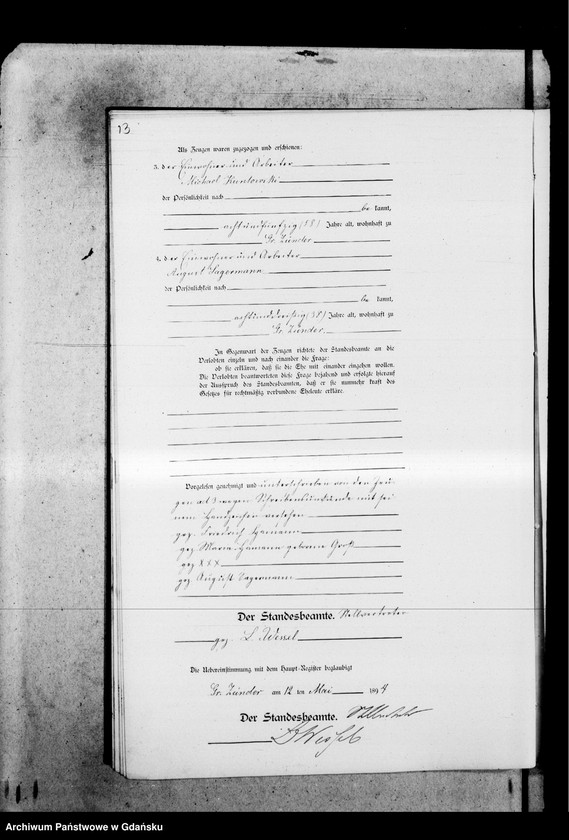 13
Als Zeugen waren zugezogen und erschienen:
3. der Einwohner und Arbeiter
Michael
der Persönlichkeit nach
be kannt,
achtundfünfzig (58) Jahre alt, wohnhaft zu
Gr. Zünder
4. der Einwohner und Arbeiter
August Sagermann
der Persönlichkeit nach
be kannt,
achtunddreißig (38) Jahre alt, wohnhaft zu
Gr. Zünder.
In Gegenwart der Zeugen richtete der Standesbeamte an die
Verlobten einzeln und nach einander die Frage:
ob sie erklären, daß sie die Ehe mit einander eingehen wollen.
Die Verlobten beantworteten diese Frage bejahend und erfolgte hierauf
der Ausspruch des Standesbeamten, daß er sie nunmehr kraft des
Gesetzes für rechtmäßig verbundene Eheleute erkläre.
Vorgelesen genehmigt und unterschrieben von den Zeu-
gen ad 3 wegen Schreibensunkunde mit sei-
nem Handzeichen versehen
gez. Friedrich Hamann
gez. Maria Hamann geborene
gez. XXX
gez. August Sagermann
Der Standesbeamte. Stellvertreter
gez. L. Wessel
Die Uebereinstimmung mit dem Haupt-Register beglaubigt
Gr. Zünder am 12 ten Mai 1894
Der Standesbeamte.
Wessel
Archiwum Państwowe w Gdańsku